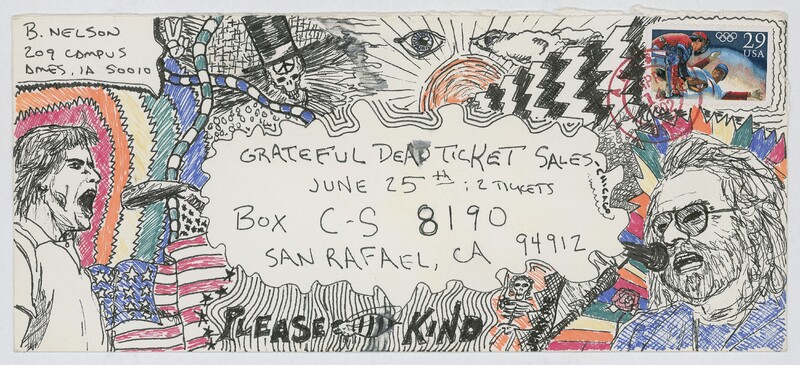 B. NELSON
209 CAMPUS
AMES, IA 50010
29
USA
GRATEFUL DEAD TICKET SALES - CHICAGO
JUNE 25th : 2 TICKETS
BOX C-S 8190
SAN RAFAEL, CA 94912
PLEASE KIND